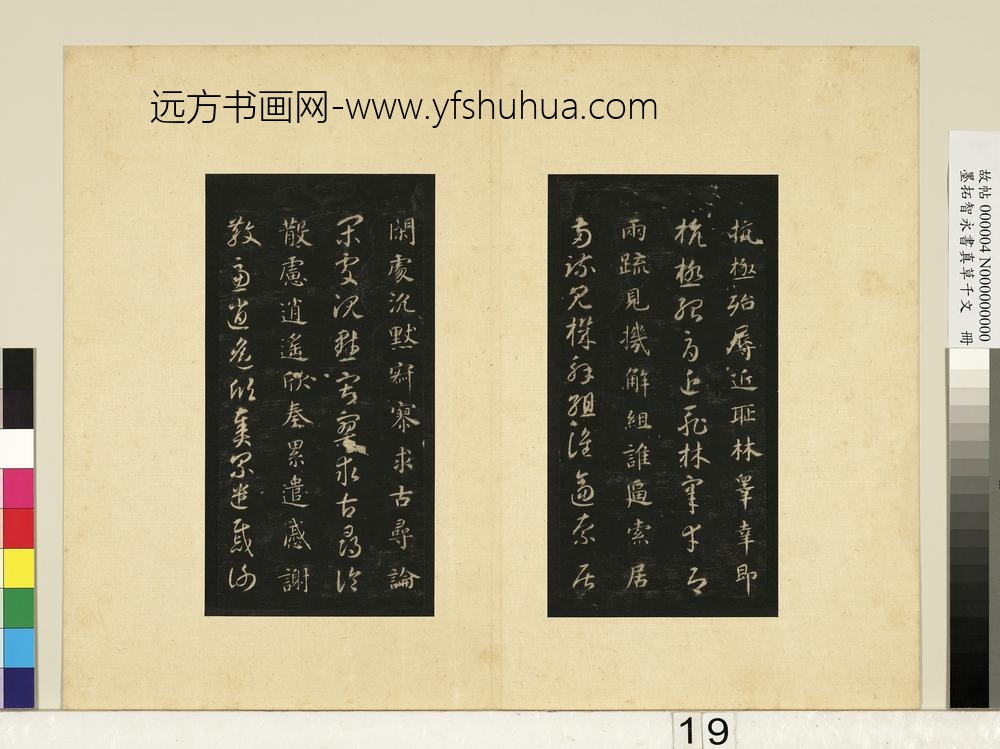 远方书画网-www.yfshuhua.com
故帖 000004 N000000000
墨拓智永書真草千文 冊
抗極殆辱近耻林睪幸即
抗極殆辱近耻林睪幸即
兩疏見機解組誰逼索居
兩疏見機解組誰逼索居
閑處沉默寂寥求古尋論
閑處沉默寂寥求古尋論
散慮逍遙欣奏累遣慼謝
散慮逍遙欣奏累遣慼謝
19